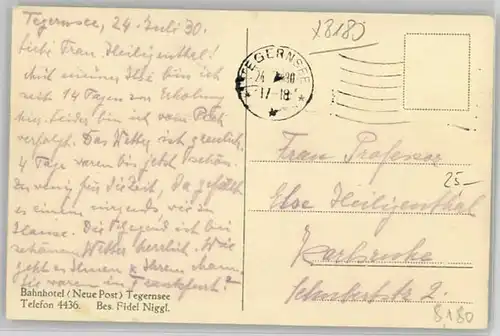 Tegernsee, 24. Juli 30.
Liebe Frau Heiligenthal!
Mit meiner Ilse bin ich
seit 14 Tagen zur Erholung
hier. Leider bin ich vom Pech
verfolgt. Das Wetter ist greulich.
4 Tage waren bis jetzt schön.
Zu wenig für die Zeit, da gefällt
es einem nirgends wie zu
Hause. Die Gegend ist bei
schönem Wetter herrlich. Wie
geht es Ihnen u. Ihrem Mann.
Sie waren in Frankfurt?
Bahnhotel (Neue Post) Tegernsee
Telefon 4436. Bes. Fidel Niggl.
TEGERNSEE
17-18
Frau Professor
Else Heiligenthal
Karlsruhe
Schubertstr. 2.
25-
8180